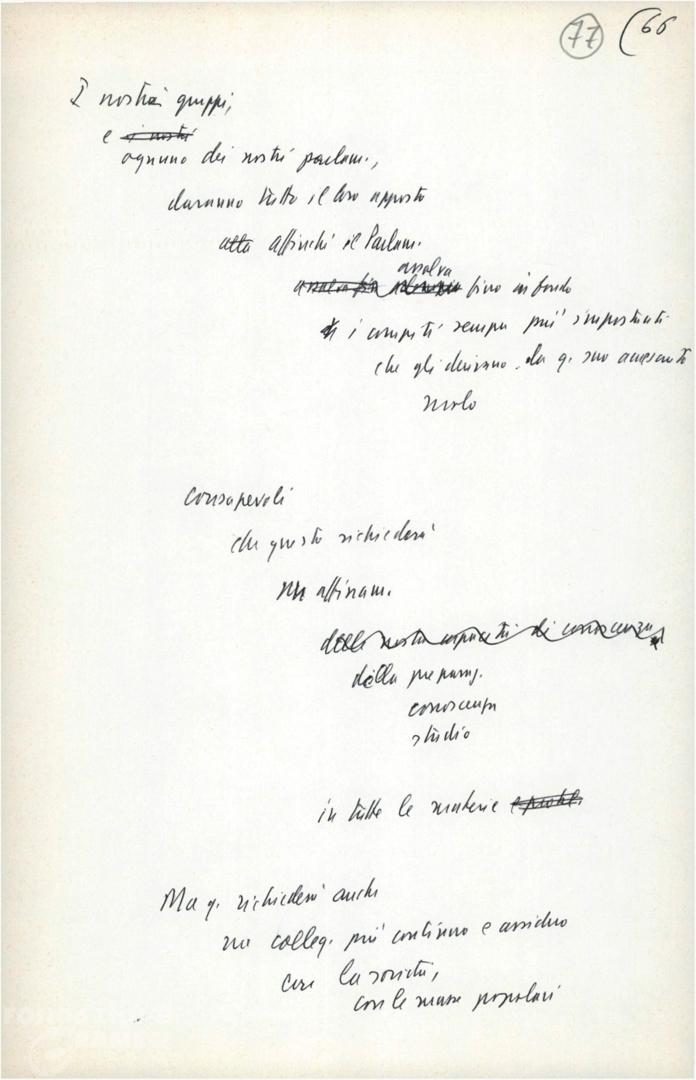 77 (66
I nostri gruppi,
e i nostri
ognuno dei nostri parlam.,
daranno tutto il loro apporto
affinché il Parlam.
assolva
fino in fondo
i compiti sempre più importanti
che gli derivano da q. suo accresciuto
ruolo
consapevoli
che questo richiederà
un affinam.
della nostra capacità di conoscenza
della preparaz.
conoscenza
studio
in tutte le materie e probl.
Ma q. richiederà anche
un colleg. più continuo e assiduo
con la società,
con le masse popolari